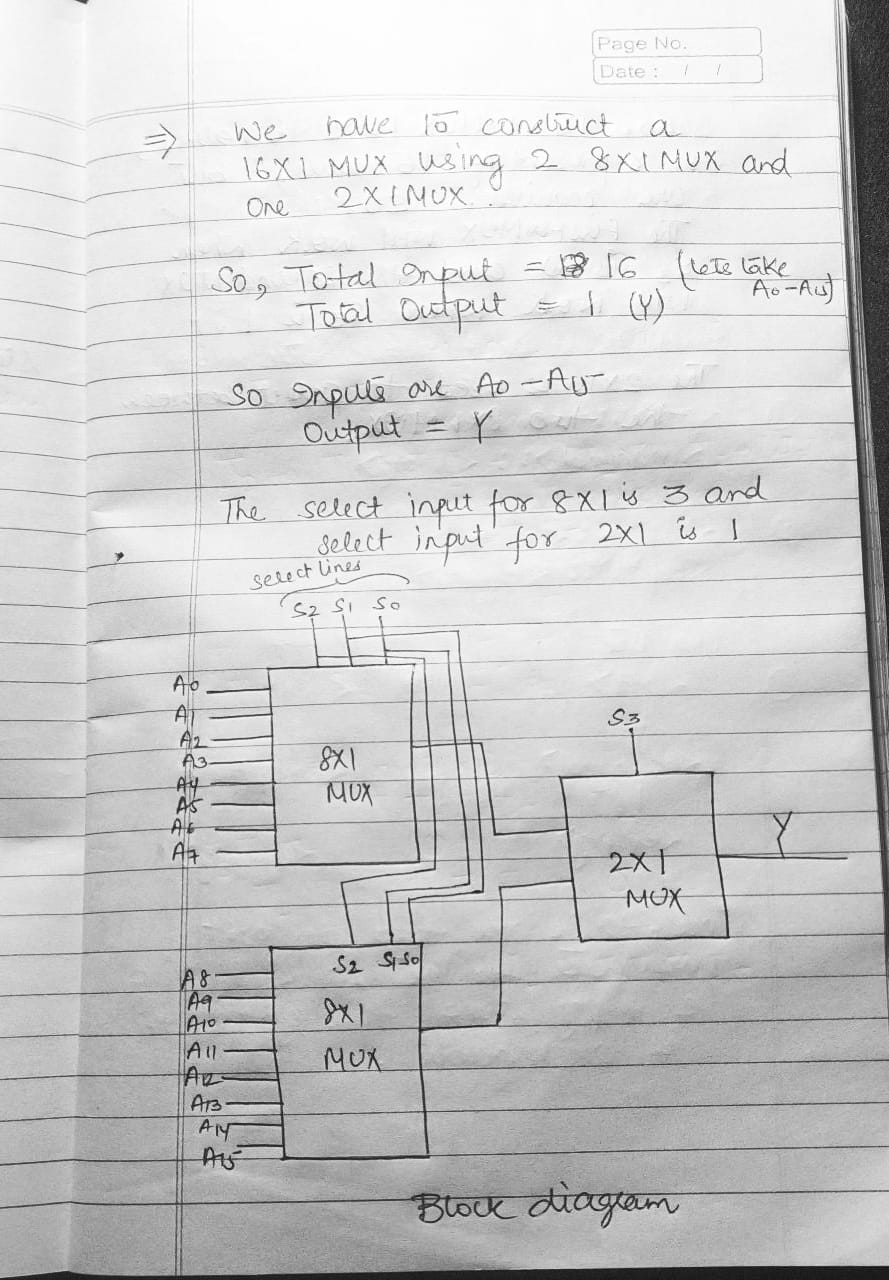 Page No.
Date : / /
⇒ We have to construct a
16X1 MUX using 2 8X1 MUX and
One 2X1 MUX.
So, Total Input = 16 (lets take
A0-A15)
Total Output = 1 (Y)
So Inputs are A0-A15
Output = Y
The select input for 8X1 is 3 and
select input for 2X1 is 1
select lines
S2 S1 S0
A0
A1
A2
A3
A4
A5
A6
A7
8X1
MUX
S3
2X1
MUX
Y
S2 S1 S0
A8
A9
A10
A11
A12
A13
A14
A15
8X1
MUX
Block diagram